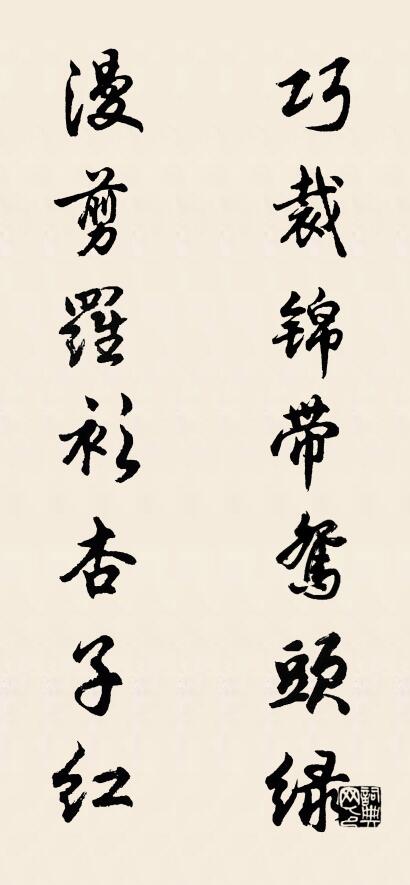 巧裁锦带鴛頭绿
漫剪羅衫杏子红
詞典
网